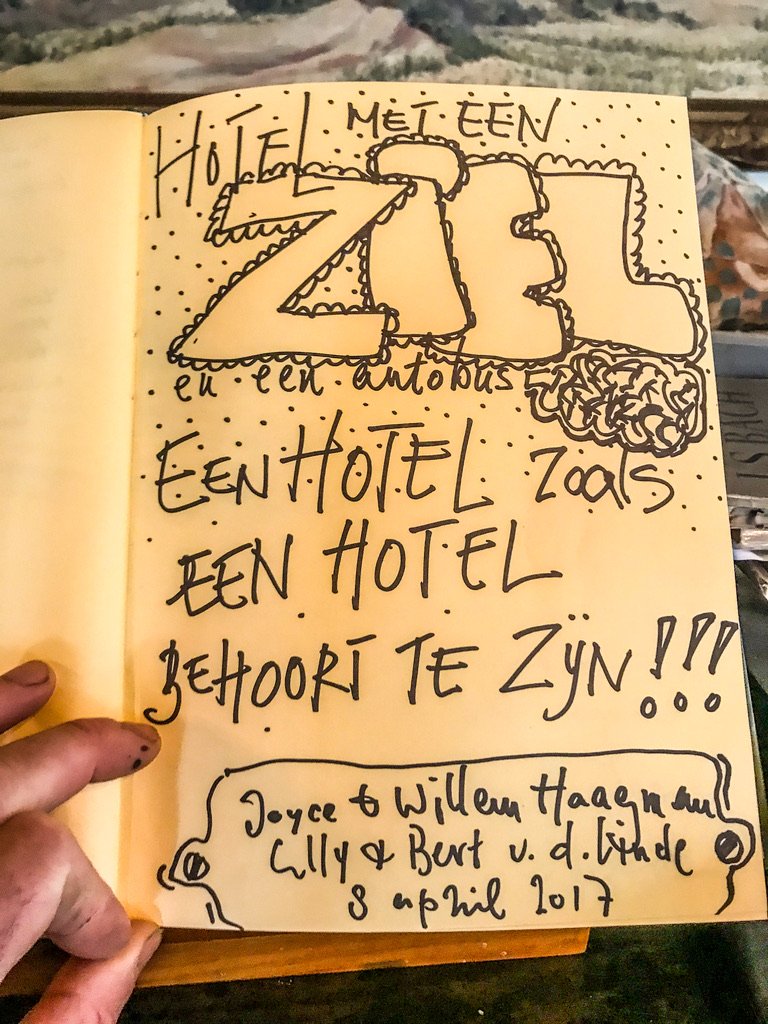 HOTEL MET EEN
ZIEL
en een autobus
EEN HOTEL zoals
EEN HOTEL
BEHOORT TE ZIJN!!!
Joyce & Willem Haagman
Elly & Bert v.d. Linde
8 april 2017